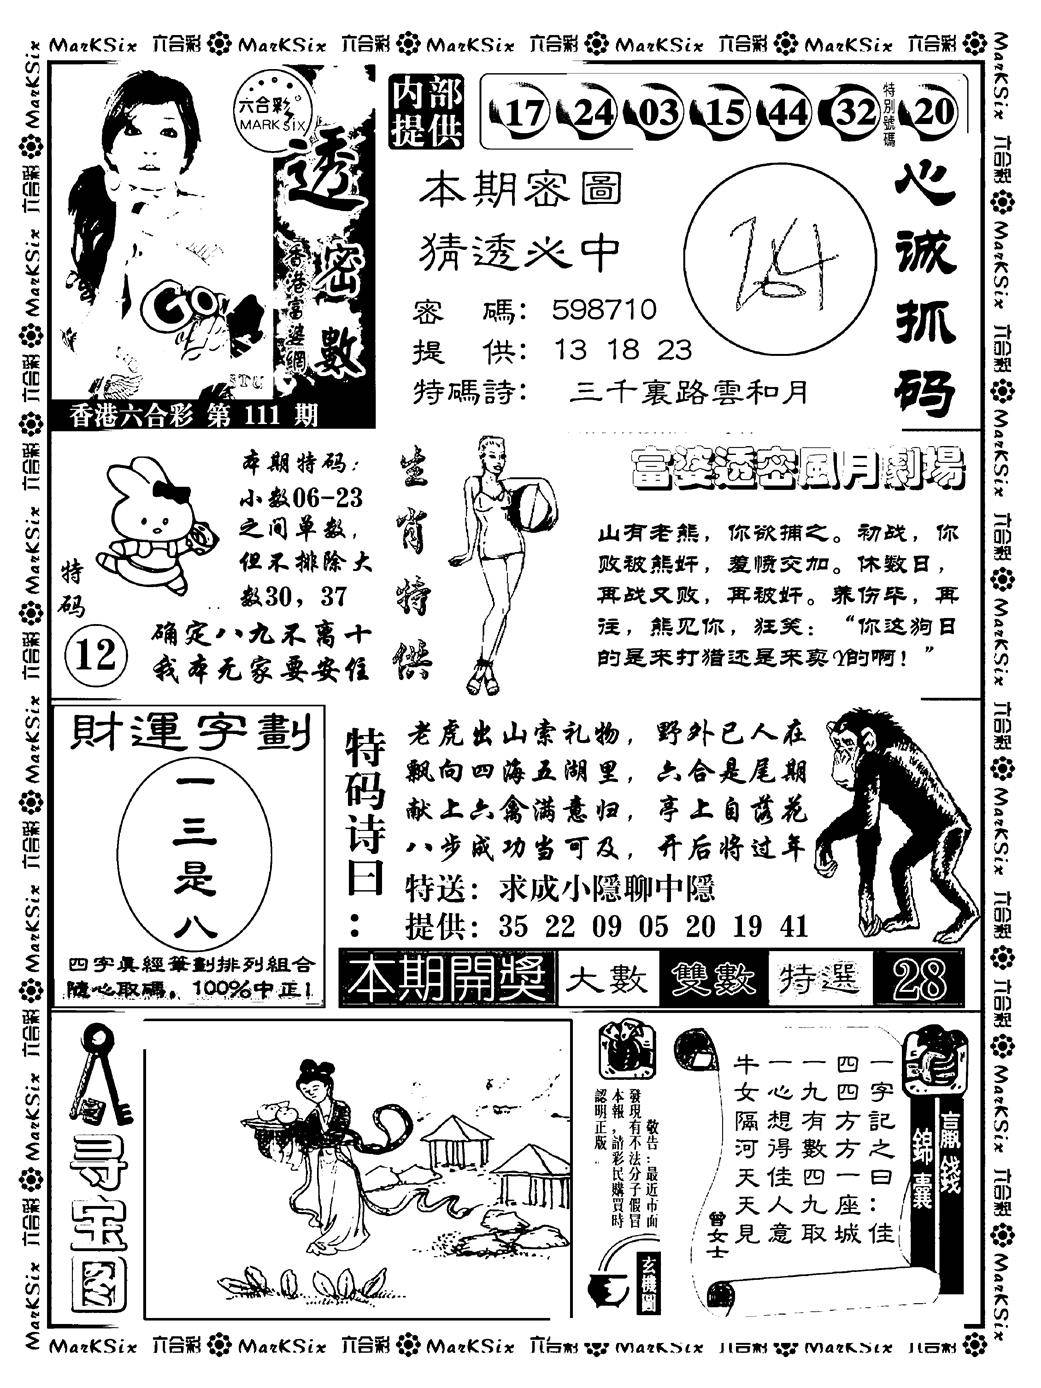 MarKSix 六合彩 MarKSix 六合彩 MarKSix 六合彩 MarKSix 六合彩 MarKSix 六合彩
六合彩
MARK SIX
透密數
香港富婆網
香港六合彩 第 111 期
内部
提供
17 24 03 15 44 32 特別號碼 20
本期密圖
猜透必中
密 碼: 598710
提 供: 13 18 23
特碼詩: 三千裏路雲和月
心诚抓码
本期特码:
小数06-23
之间单数,
但不排除大
数30, 37
特码
12
确定八九不离十
我本无家要安住
生肖特供
富婆透密風月劇場
山有老熊,你欲捕之。初战,你
败被熊奸,羞愤交加。休数日,
再战又败,再被奸。养伤毕,再
往,熊见你,狂笑:“你这狗日
的是来打猎还是来卖Y的啊!”
財運字劃
一
三
是
八
四字真經筆劃排列組合
隨心取碼,100%中正!
特码诗曰:
老虎出山索礼物,野外已人在
飘向四海五湖里,六合是尾期
献上六禽满意归,亭上自落花
八步成功当可及,开后将过年
特送: 求成小隱聊中隱
提供: 35 22 09 05 20 19 41
本期開獎 大數 雙數 特選 28
寻宝图
敬告:最近市面
發現有不法分子假冒
本報,請彩民購買時
認明正版
玄機圖
贏錢
錦囊
一字記之曰:佳
四四方方一座城
一九有數四九取
一心想得佳人意
牛女隔河天天見
曾女士
MarKSix 六合彩 MarKSix 六合彩 MarKSix 六合彩 MarKSix 六合彩 MarKSix 六合彩